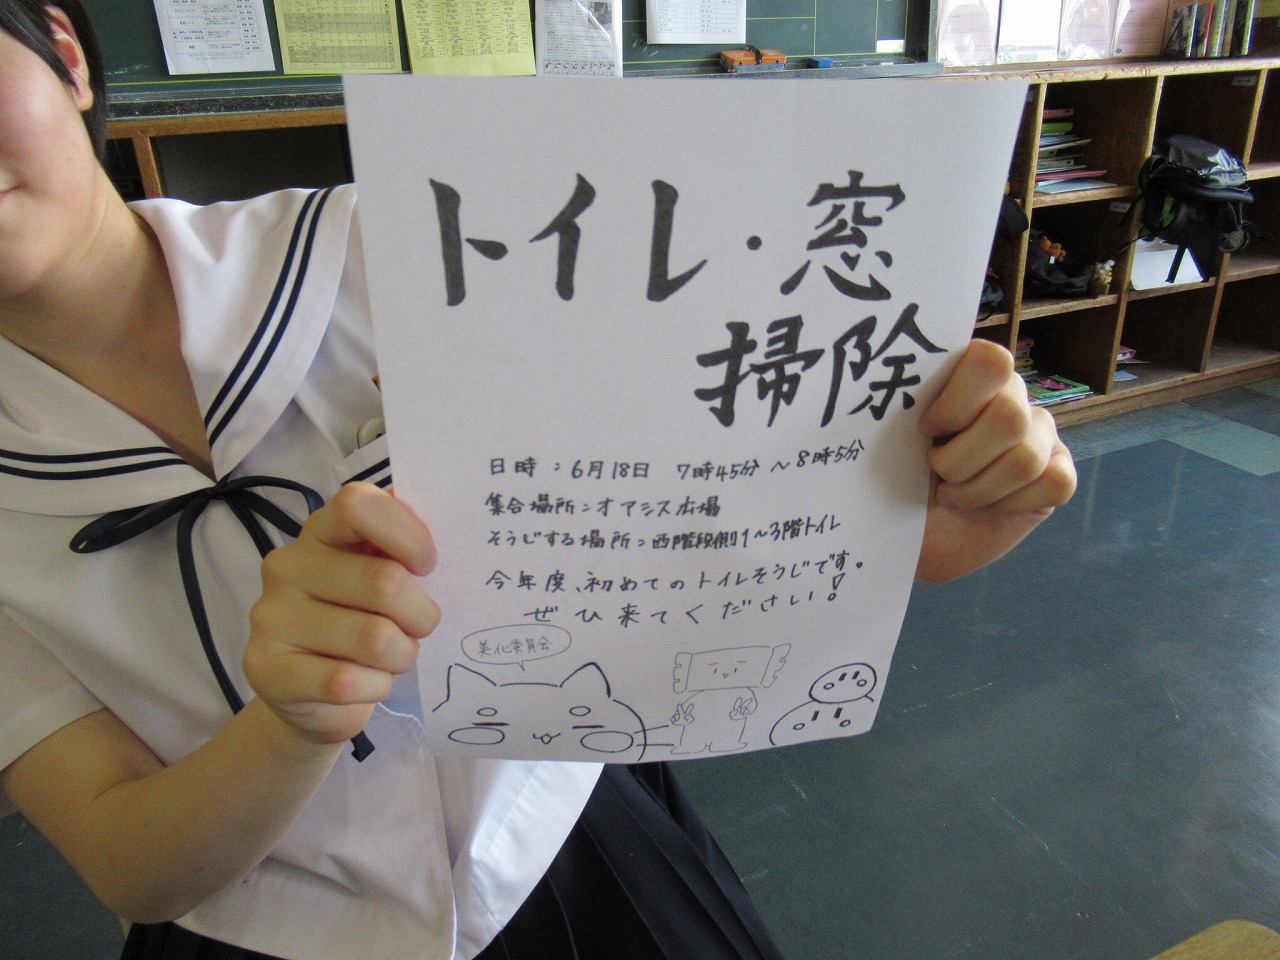 トイレ・窓
掃除
日時：6月18日 7時45分～8時5分
集合場所：オアシス広場
そうじする場所：西階段側1～3階トイレ
今年度、初めてのトイレそうじです。
ぜひ来てください!
美化委員会